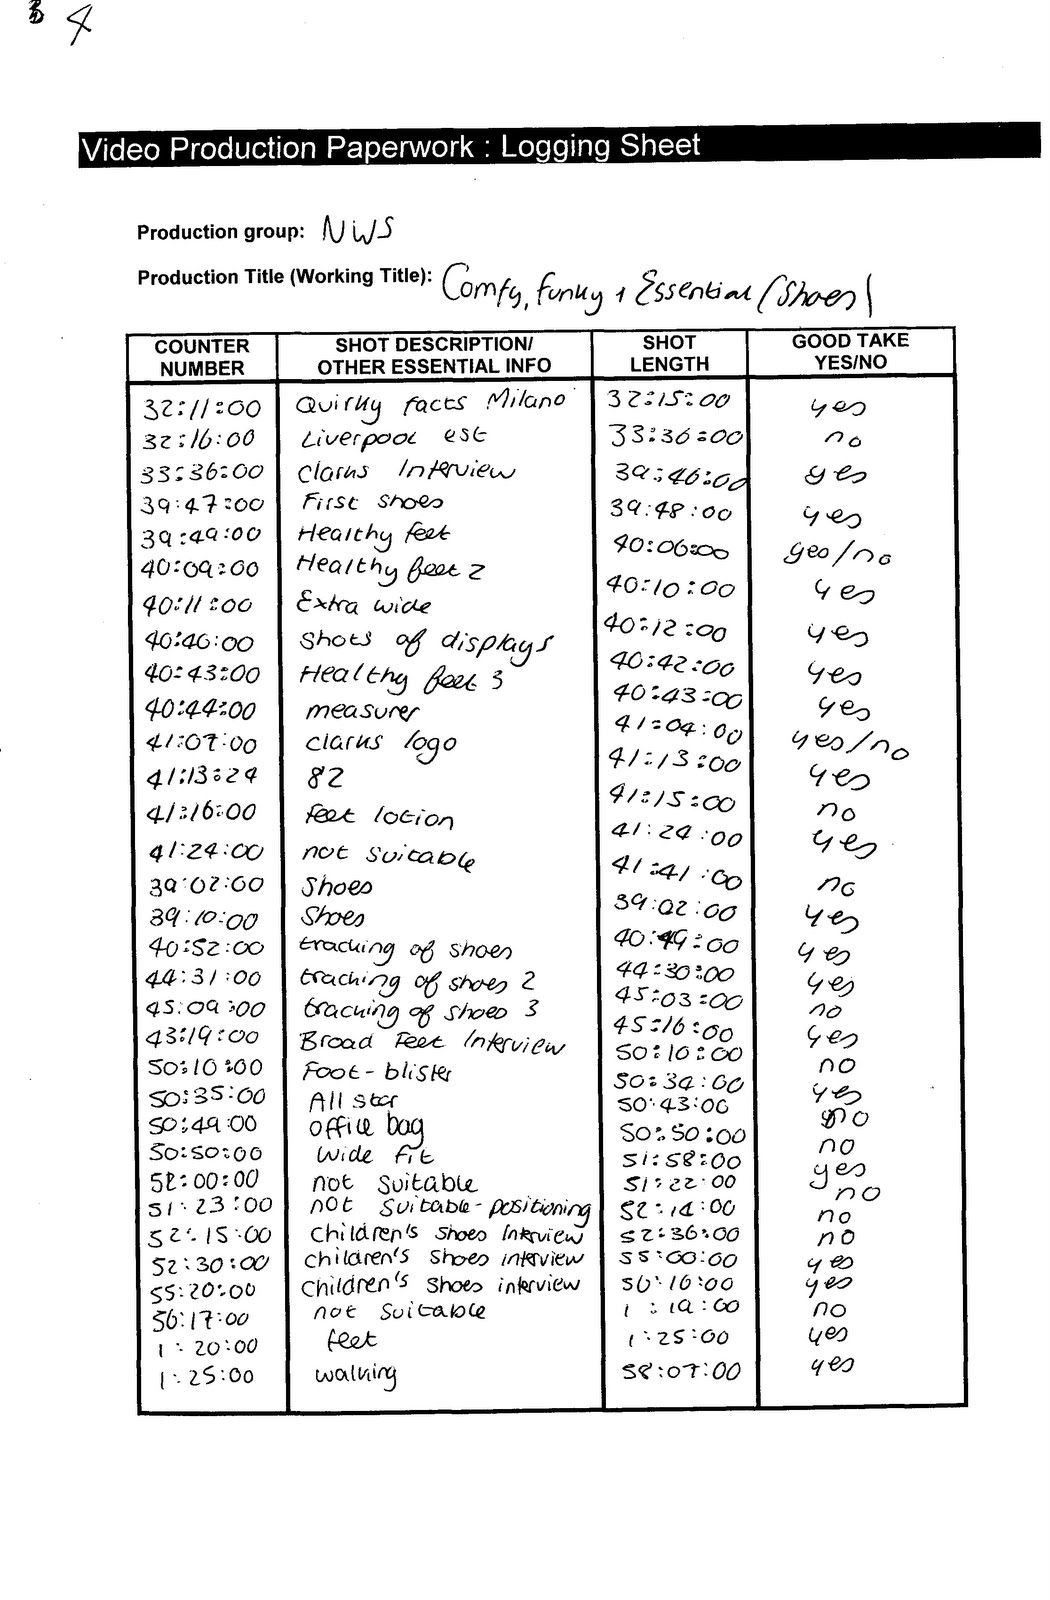 4
Video Production Paperwork : Logging Sheet
Production group: NWS
Production Title (Working Title): Comfy, Funky + Essential (Shoes)
COUNTER NUMBER SHOT DESCRIPTION/ OTHER ESSENTIAL INFO SHOT LENGTH GOOD TAKE YES/NO
32:11:00 Quirky facts Milano 32:15:00 yes
32:16:00 Liverpool est 33:36:00 no
33:36:00 Clarks Interview 39:46:00 yes
39:47:00 First shoes 39:48:00 yes
39:49:00 Healthy feet 40:06:00 yes/no
40:09:00 Healthy feet 2 40:10:00 yes
40:11:00 Extra wide 40:12:00 yes
40:40:00 Shots of displays 40:42:00 yes
40:43:00 Healthy feet 3 40:43:00 yes
40:44:00 measurer 41:04:00 yes/no
41:07:00 clarks logo 41:13:00 yes
41:13:24 82 41:15:00 no
41:16:00 feet lotion 41:24:00 yes
41:24:00 not suitable 41:41:00 no
39:02:00 Shoes 39:02:00 yes
39:10:00 Shoes 40:49:00 yes
40:52:00 tracking of shoes 44:30:00 yes
44:31:00 tracking of shoes 2 45:03:00 no
45:09:00 tracking of shoes 3 45:16:00 yes
43:19:00 Broad Feet Interview 50:10:00 no
50:10:00 Foot-blister 50:34:00 yes
50:35:00 All star 50:43:00 no
50:49:00 office bag 50:50:00 no
50:50:00 Wide fit 51:58:00 yes
52:00:00 not suitable 51:22:00 no
51:23:00 not suitable-positioning 52:14:00 no
52:15:00 children's shoes Interview 52:36:00 no
52:30:00 children's shoes interview 55:00:00 yes
55:20:00 children's shoes interview 56:16:00 yes
56:17:00 not suitable 1:19:00 no
1:20:00 feet 1:25:00 yes
1:25:00 walking 58:07:00 yes